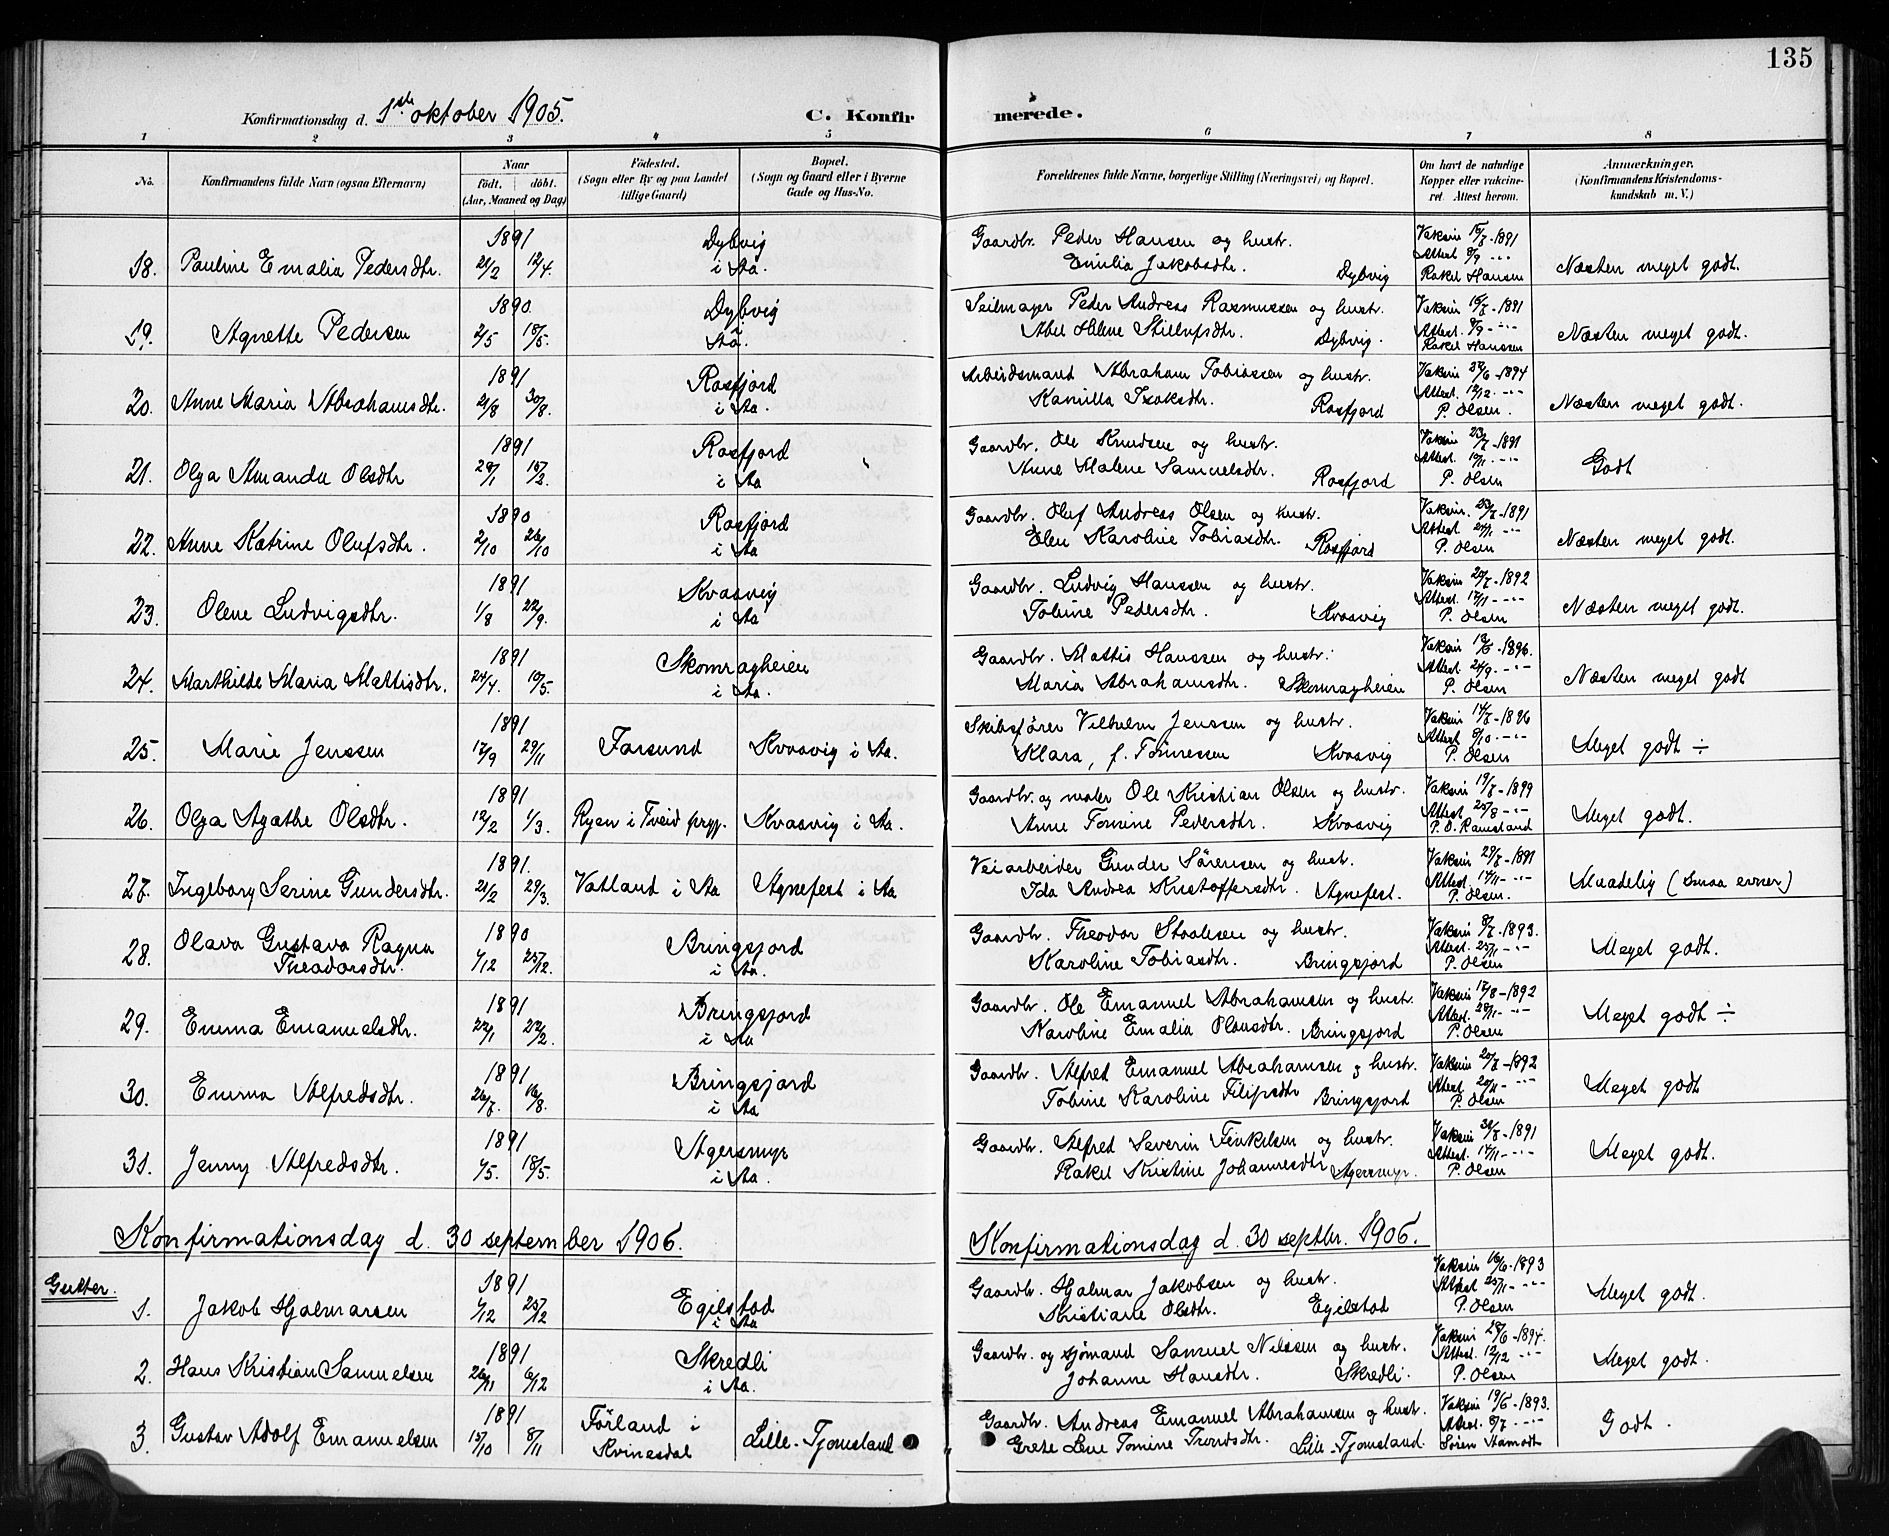 135
Konfirmationsdag d. 1ste oktober 1905. C. Konfirmerede.
1 2 3 4 5 6 7 8
No. Konfirmandens fulde Navn (ogsaa Efternavn) Naar født. døbt. (Aar, Maaned og Dag) Fødested. (Sogn eller By og paa Landet tillige Gaard) Bopæl. (Sogn og Gaard eller i Byerne Gade og Hus-No. Forældrenes fulde Navne, borgerlige Stilling (Næringsvei) og Bopæl. Om havt de naturlige Kopper eller vakcineret. Attest herom. Anmærkninger. (Konfirmandens Kristendomskundskab m. V.)
18. Pauline Emalia Pedersdtr. 1891 21/2 12/4. Dybvig i Aa. Gaardbr. Peder Hansen og hustr. Emilia Jakobsdtr. Dybvig Vaksin 15/7-1891 Attest 9/9 -"- Rakel Hansen Næsten meget godt.
19. Agnette Pedersen 1890. 2/5 18/5. Dybvig Aa. Seilmager Peder Andreas Rasmussen og hustr. Abel Helene Stillufsdtr. Dybvig. Vaksin 15/7-1891 Attest 9/9 -"- Rakel Hanssen Næsten meget godt.
20. Anne Maria Abrahamsdtr. 1891 2/8 30/8. Rosfjord i Aa. Arbeidsmand Abraham Tobiassen og hustr. Kamilla Isaksdtr. Rosfjord Vaksin 22/6-1894 Attest 12/12. -"- P. Olsen. Næsten meget godt.
21. Olga Amanda Olsdtr 1891 29/1 15/2. Rosfjord i Aa Gaardbr. Ole Knudsen og hustr. Anne Malene Samuelsdtr. Rosfjord Vaksin 23/7-1891 Attest 19/11. -"- P. Olsen Godt
22. Anne Katrine Olufsdtr. 1890 2/10 26/10 Rosfjord i Aa Gaardbr. Oluf Andreas Olsen og hustr. Elen Karoline Tobiasdtr. Rosfjord Vaksin. 23/7-1891 Attest 24/11 -"- P. Olsen Næsten meget godt.
23. Olene Ludvigsdtr. 1891 1/8 22/9. Kvaavig i Aa Gaardbr. Ludvig Hanssen og hustr. Tobine Pedersdtr. Kvaavig Vaksin 20/7-1892 Attest 17/11 -"- P. Olsen Næsten meget godt.
24. Marthilde Maria Mattisdtr. 1891 24/4. 10/5. Skomragheien i Aa. Gaardbr. Mattis Hanssen og hustr. Maria Abrahamsdtr. Skomragheien Vaksin -1896. Attest 24/9 -"- P. Olsen Næsten meget godt
25. Marie Jenssen 1891 17/9 29/11 Farsund Kvaavig i Aa. Skibsfører Vilhelm Jenssen og hustr. Klara, f. Tønnessen Kvaavig Vaksin 14/7-1896 Attest 9/10. -"- P. Olsen Meget godt ÷
26. Olga Agathe Olsdtr. 1891 12/2 1/3. Ryen i Tveid prgj. Kvaavig i Aa. Gaardbr. og maler Ole Kristian Olsen og hustr. Anne Tomine Pedersdtr. Kvaavig Vaksin 19/7-1899 Attest 25/8 -"- P. O. Ramsland Meget godt.
27. Ingeborg Serine Gundersdtr. 1891. 21/2 29/3. Vatland i Aa Agnefest i Aa Veiarbeider Gunder Sørensen og hustr. Ida Andrea Kristoffersdtr. Agnefest. Vaksin 29/7-1891 Attest 14/11 -"- P. Olsen. Maadelig (smaa evner)
28. Olava Gustava Ragna Theodorsdtr. 1890 1/12 25/12. Bringsjord i Aa. Gaardbr. Theodor Staalesen og hustr. Karoline Tobiasdtr. Bringsjord Vaksin 8/7-1893. Attest 25/11 -"- P. Olsen Meget godt.
29. Emma Emanuelsdtr. 1891 22/1 22/2. Bringsjord i Aa Gaardbr. Ole Emanuel Abrahamsen og hustr. Karoline Emalia Olausdtr. Bringsjord Vaksin 17/8-1892 Attest 28/11 -"- P. Olsen Meget godt ÷
30. Emma Alfredsdtr. 1891 26/7. 16/8. Bringsjord i Aa Gaardbr. Alfred Emanuel Abrahamsen og hustr. Tobine Karoline Filipsdtr Bringsjord Vaksin 20/7-1892 Attest 20/11 -"- P. Olsen Meget godt.
31. Jenny Alfredsdtr. 1891 1/5. 18/5. Agersmyr i Aa. Gaardbr. Alfred Severin Finkelsen og hustr. Rakel Kristine Johannesdtr Agersmyr. Vaksin -1891 Attest 14/11 -"- P. Olsen Meget godt.
Konfirmationsdag d. 30 september 1906. Konfirmationsdag d. 30 septbr. 1906.
Gutter.
1. Jakob Hjalmarsen 1891 1/12 25/12 Egilstad i Aa Gaardbr. Hjalmar Jakobsen og hustr. Kristiane Olsdtr. Egilstad Vaksin 16/6-1893 Attest 25/11 -"- P. Olsen Meget godt.
2. Hans Kristian Samuelsen 1891 26/11 6/12 Skredli i Aa. Gaardbr. og sjømand Samuel Nilssen og hustr. Johanne Hansdtr. Skredli. Vaksin 28/6-1894. Attest 12/12 -"- P. Olsen Meget godt.
3. Gustav Adolf Emanuelsen 1891 15/10 8/11 Førland i Kvinesdal Lille-Tjomsland Gaardbr. Andreas Emanuel Abrahamsen og hustr. Grete Lene Tomine Trondsdtr. Lille-Tjomsland. Vaksin 19/6-1893. Attest. 8/7 -"- Søren Stamodt Godt.